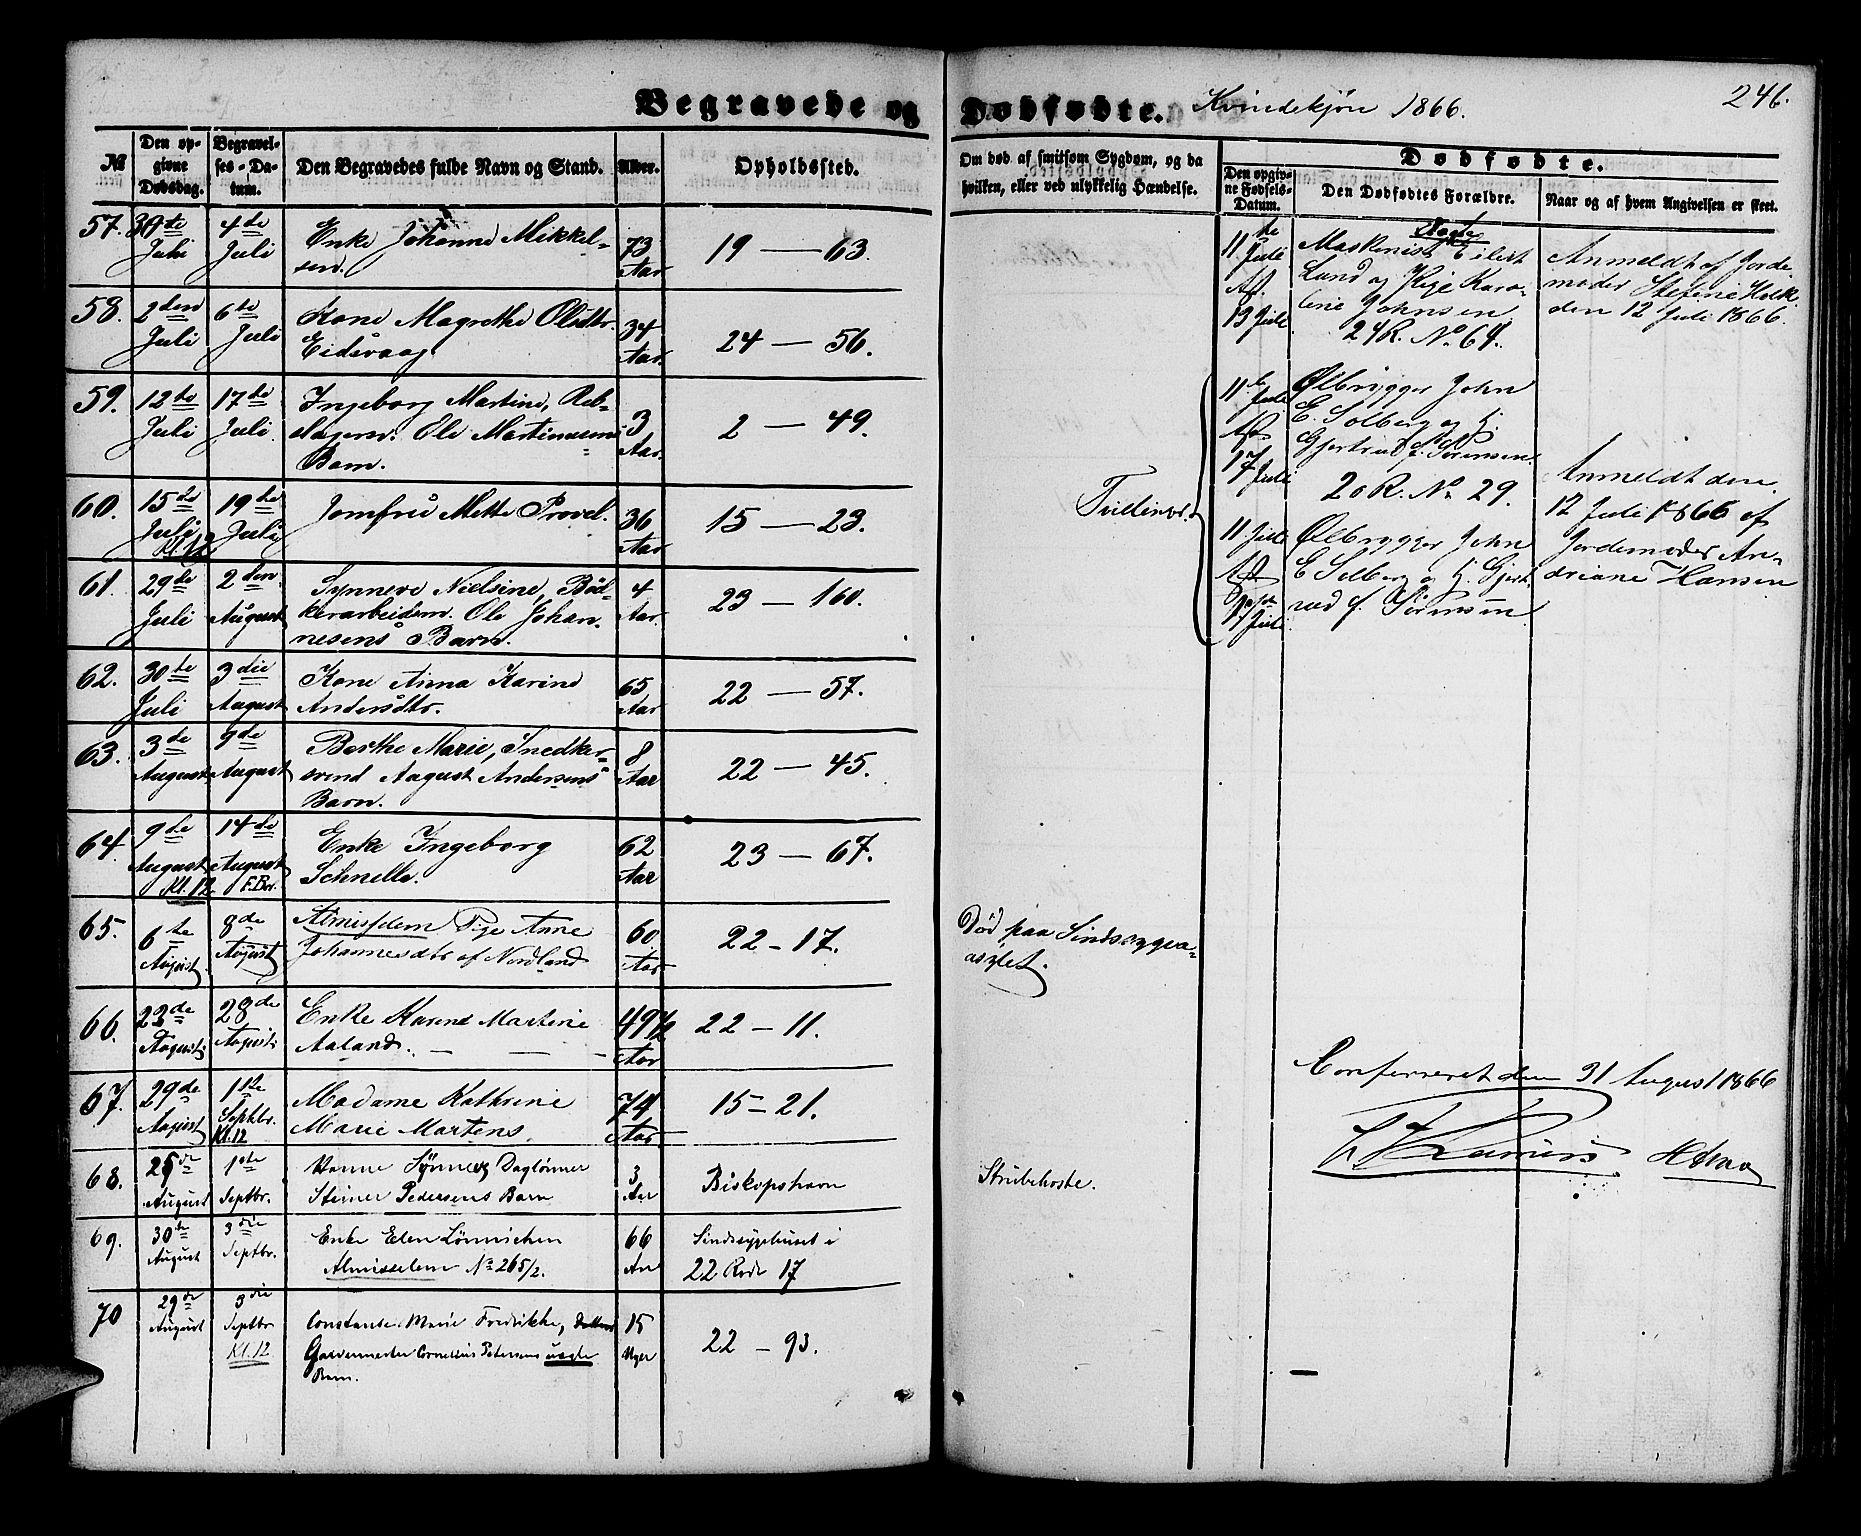 Begravede og Dødfødte. Kvindekjøn 1866. 246.
№ Den opgivne Dødsdag. Begravelses-Datum. Den Begravedes fulde Navn og Stand. Alder. Opholdssted.
Om død af smitsom Sygdom, og da
hvilken, eller ved ulykkelig Hændelse.
Dødfødte.
Den opgivne Fødsels-Datum. Den Dødfødtes Forældre. Naar og af hvem Angivelsen er skeet.
57. 30te Juli 4de Juli Enke Johanne Mikkel-
sen. 73 Aar 19 — 63.
58. 2den Juli 6te Juli Kone Magrethe Olsdtr.
Eidsvaag 34 Aar. 24 — 56.
59. 12te Juli 17de Juli. Ingeborg Martine, Reb-
slagersv. Ole Martinusens
Barn. 3 Aar. 2 — 49.
60. 15de Juli Kl. 12 19de Juli Jomfru Mette Provel. 36 Aar. 15 — 23.
61. 29de Juli 2den August Synneve Nielsine, Bød-
kerarbeidsm. Ole Johan-
nesens Barn. 4 Aar. 23 — 160.
62. 30te Juli 3die August Kone Anna Karine
Andersdtr. 65 Aar 22 — 57.
63. 3de August 9de August Berthe Marie, Snedker-
svend August Andersens
Barn. 8 Aar 22 — 45.
64. 9de August Kl. 12 14de August F.B. Enke Ingeborg
Schnelle. 62 Aar 23 — 67.
65. 6te August. 8de August Almisselem Pige Anne
Johannesdtr af Nordland 60 Aar 22 - 17.
Død paa Sindssyge-
asylet.
66. 23de August. 28de August. Enke Karine Martine
Aaland. 49 1/2 Aar 22 - 11.
67. 29de August 1ste Septbr. Kl. 12 Madame Kathrine
Marie Martens. 74 Aar. 15 - 21.
68. 25de August 1ste Septbr. Hanne Synnev, Daglønner
Steiner Pedersens Barn 3 Aar Biskopshavn
Strubehoste.
69. 30te August 3die Septbr. Enke Elen Lønnichen
Almisselem No 265/2. 66 Aar Sindssygehuset i
22 Rode 17
70 29de August 3die Septbr Kl. 12 Constanse Marie Fredrikke,
Garvermester Cornelius Petersens uægte
Barn. 15 Uger 22 — 93.
11te Juli 13 Juli Ægte
Maskenist Eilert
Lund og Pige Karo-
line Johnsen
24R. No 64.
Anmeldt af Jorde-
moder Stefine Holk
den 12 Juli 1866.
Tvillinger.
11te Juli 17 Juli Ølbrygger John
E. Solberg og H.
Gjertrud f. Sørensen.
20R. No 29.
11 Juli 17 Juli Ølbrygger John
E Solberg og H. Gjert-
rud f. Sørensen.
Anmeldt den
12 Juli 1866 af
Jordemoder An-
driane Hansen
Confereret den 31 August 1866